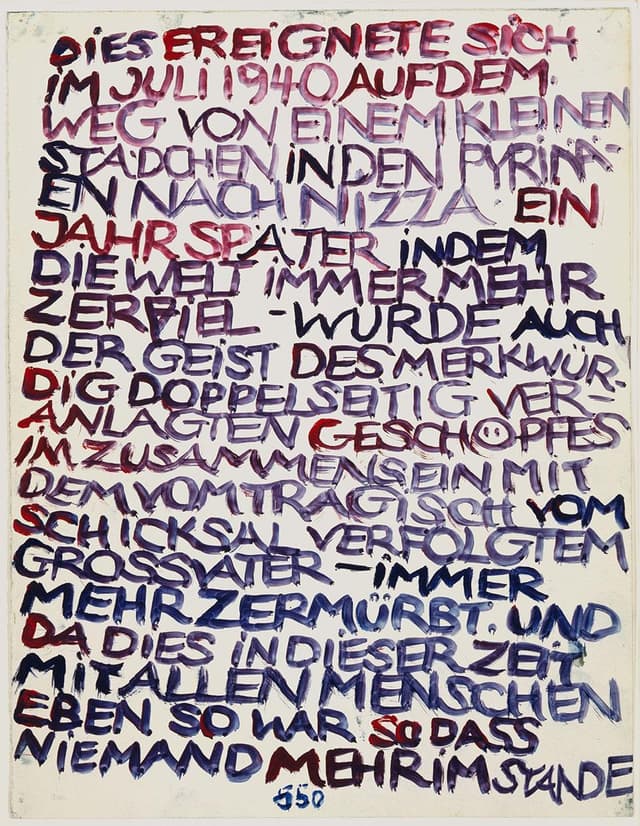 DIES EREIGNETE SICH
IM JULI 1940 AUF DEM
WEG VON EINEM KLEINEN
STÄDCHEN IN DEN PYRINÄ-
EN NACH NIZZA. EIN
JAHR SPÄTER INDEM
DIE WELT IMMER MEHR
ZERFIEL - WURDE AUCH
DER GEIST DES MERKWÜR-
DIG DOPPELSEITIG VER-
ANLAGTEN GESCHÖPFES
IM ZUSAMMENSEIN MIT
DEM VOM TRAGISCH VOM
SCHICKSAL VERFOLGTEM
GROSSVATER - IMMER
MEHR ZERMÜRBT. UND
DA DIES IN DIESER ZEIT
MIT ALLEN MENSCHEN
EBEN SO WAR SO DASS
NIEMAND MEHR IM STANDE
550